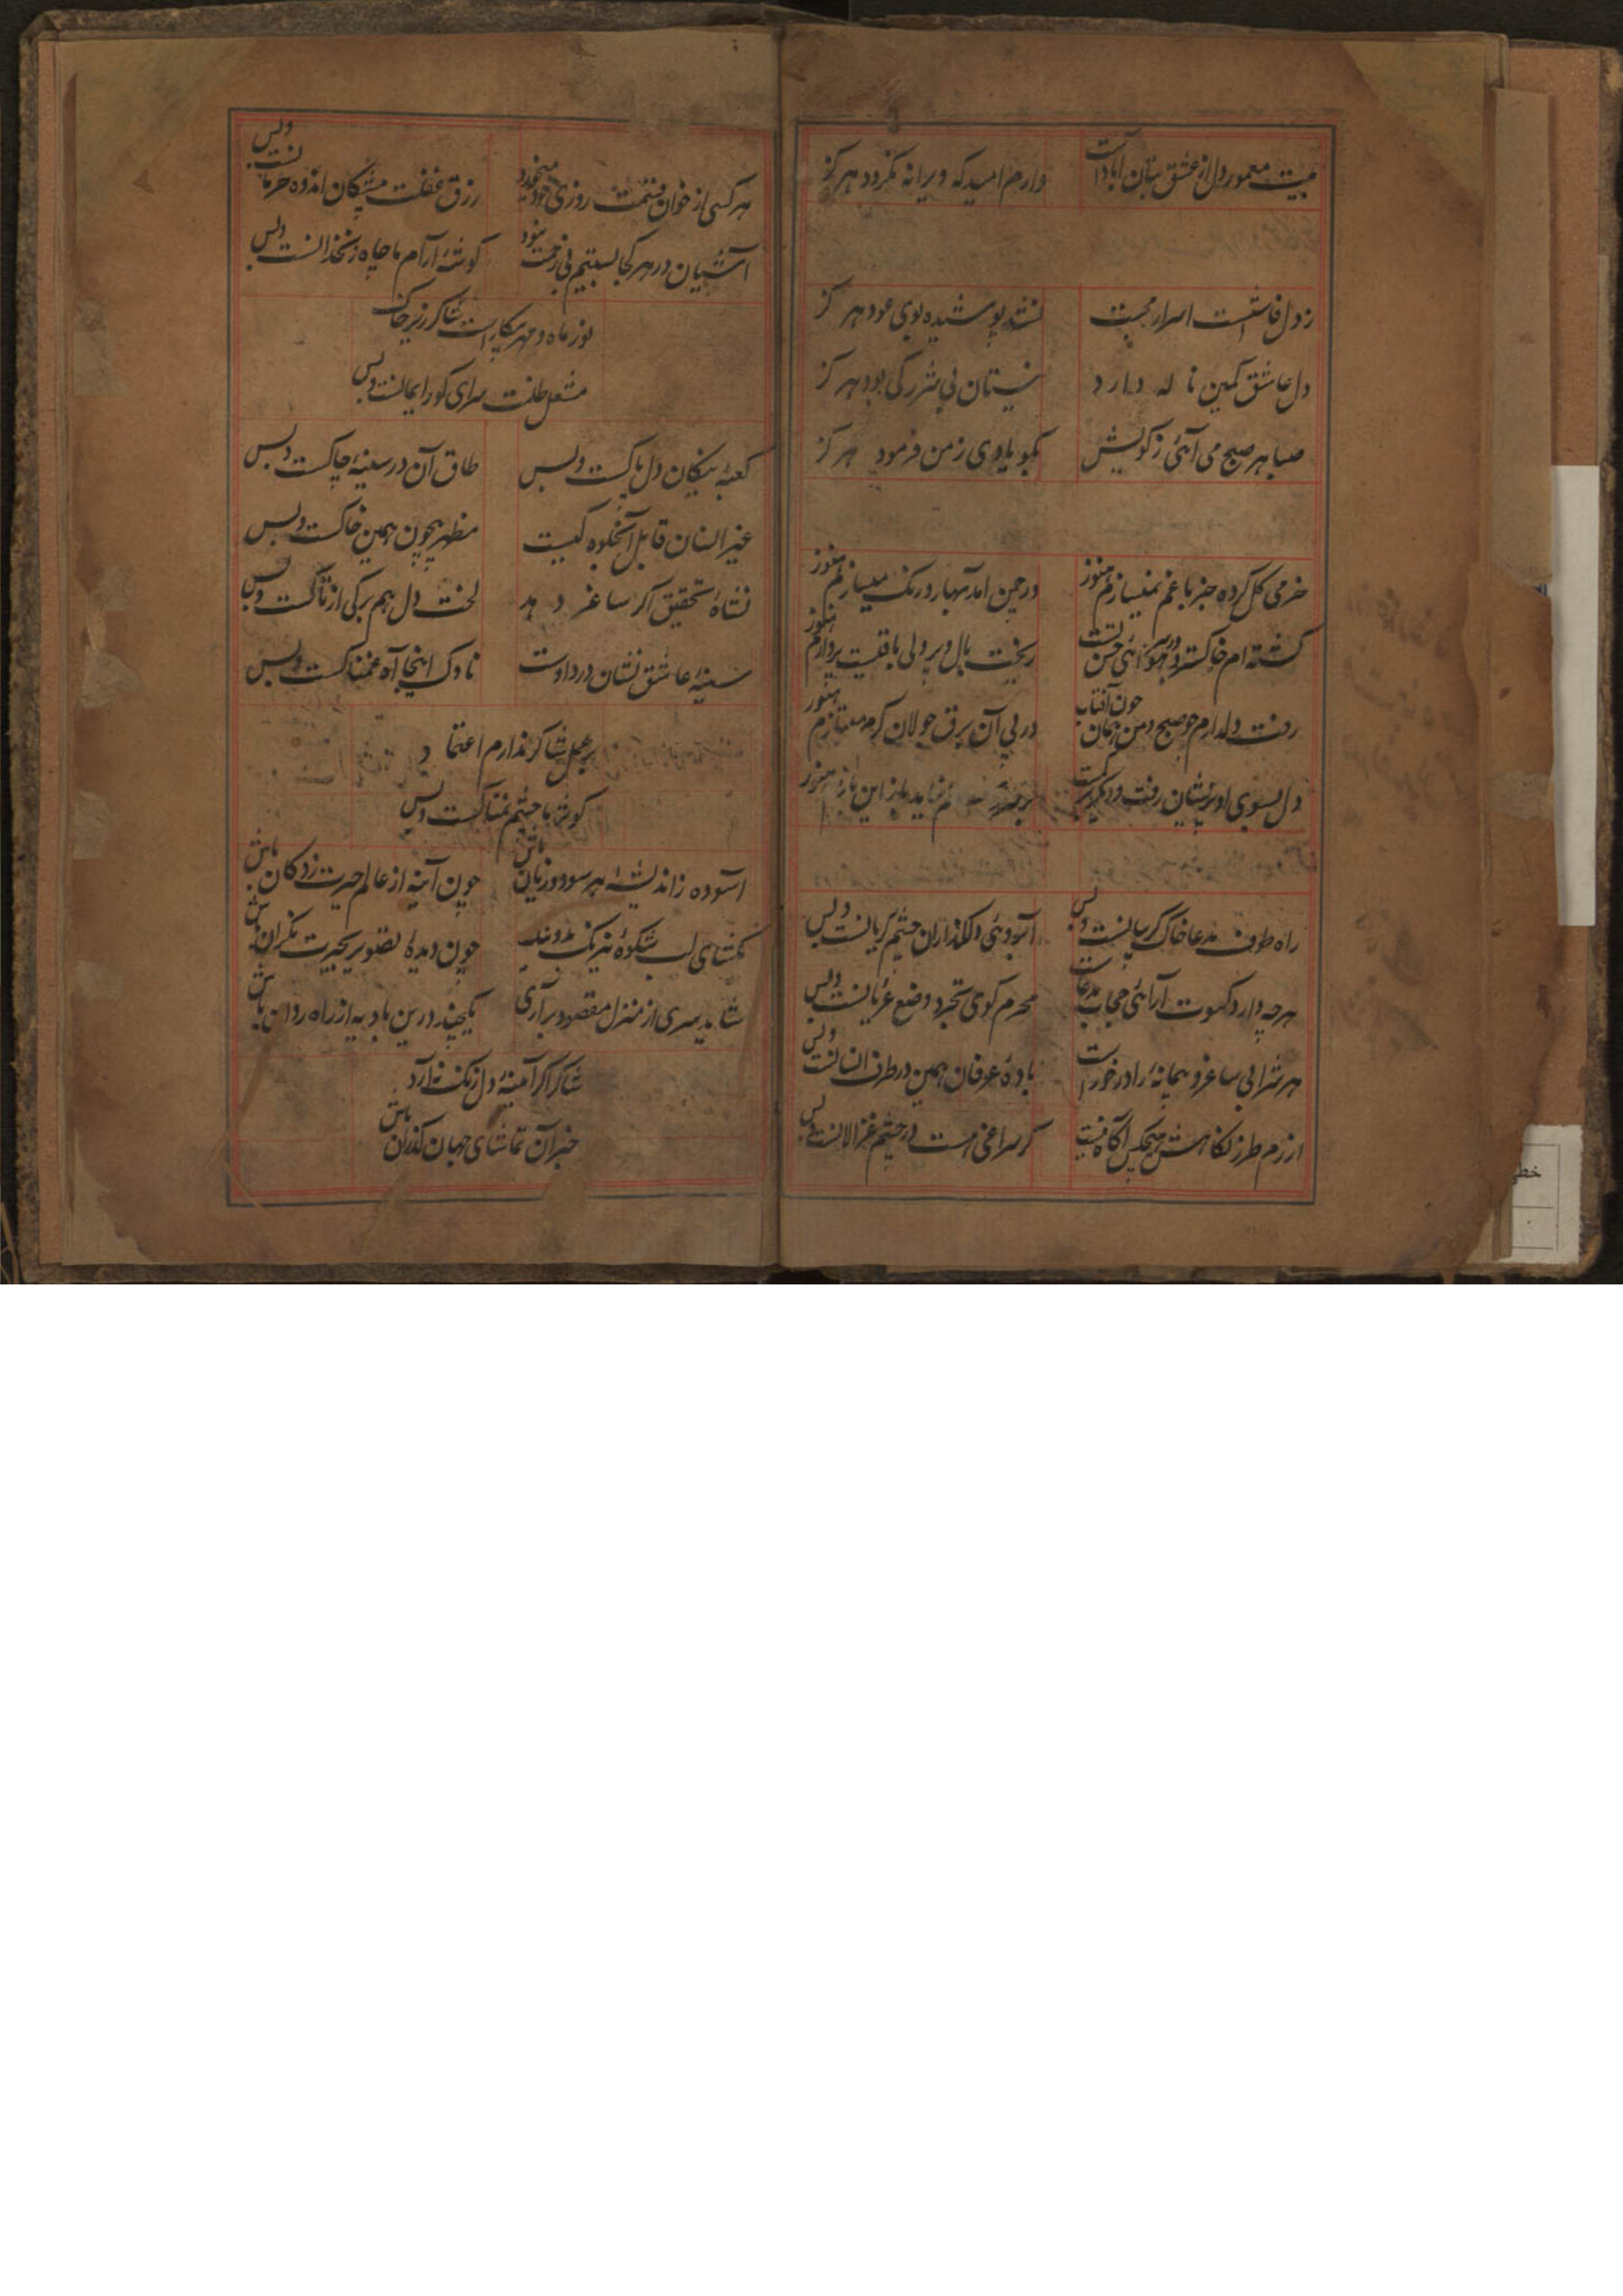 بیت معمور دل از عشق بتان آبادست
دارم امید که ویرانه نگردد هرگز
ز دل فاش است اسرار محبت
نشد پوشیده بوی عود هرگز
دل عاشق کمین ناله دارد
نیستان بی شرر کی بود هرگز
صبا هر صبح می آئی ز کویش
بگو یادی ز من فرمود هرگز
خرمی گل کرده جز با غم نمیسازم هنوز
در چمن آمد بهار و رنگ میبازم هنوز
گشته ام خاکستر و در سر هوائی حسن تست
ریخت بال و پر ولی باقیست پروازم هنوز
رفت دلدارم چو صبح و من همان چون آفتاب
در پی آن برق جولان گرم میتازم هنوز
دل بسوی او پریشان رفت و دیگر برنگشت
هنوز
راه طوف مدعا خاک گریبانست و بس
آبروئی دلگدازان چشم گریانست و بس
هر چه دارد کسوت آرائی حجاب مدعاست
محرم کوی تجرد وضع عریانست و بس
هر شرابی ساغر و پیمانهٔ را در خورست
بادهٔ عرفان همین در ظرف انسانست و بس
از رم طرز نگاهش هیچکس آگاه نیست
گر سراغی هست در چشم غزالانست و بس
هر کسی از خوان قسمت روزی خود میخورد
رزق غفلت پیشگان اندوه حرمانست و بس
آشیان در هر کجا بستیم بی زحمت نبود
گوشهٔ آرام ما چاه زنخدانست و بس
نور ماه و مهر بیکارست شاکر زیر خاک
مشعل ظلمت سرای گور ایمانست و بس
کعبهٔ نیکان دل پاکست و بس
طاق آن در سینهٔ چاکست و بس
غیر انسان قابل آن جلوه کیست
مظهر بیچون همین خاکست و بس
نشاهٔ تحقیق اگر ساغر دهد
لخت دل هم برگی از تاکست و بس
سینهٔ عاشق نشان درد اوست
ناوک اینجا آه غمناکست و بس
بر عمل شاکر ندارم اعتماد
کوثر ما چشم نمناکست و بس
آسوده ز اندیشهٔ هر سود و زیان باش
چون آینه از عالم حیرت زدگان باش
نگشای لب شکوه نیرنگ مدوند
چون دیدهٔ تصویر بحیرت نگران باش
شاید بسری از منزل مقصود برآری
یکچند درین بادیه از راه روان باش
شاکر اگر آینهٔ دل زنگ ندارد
حیران تماشای جهان گذران باش
خطی